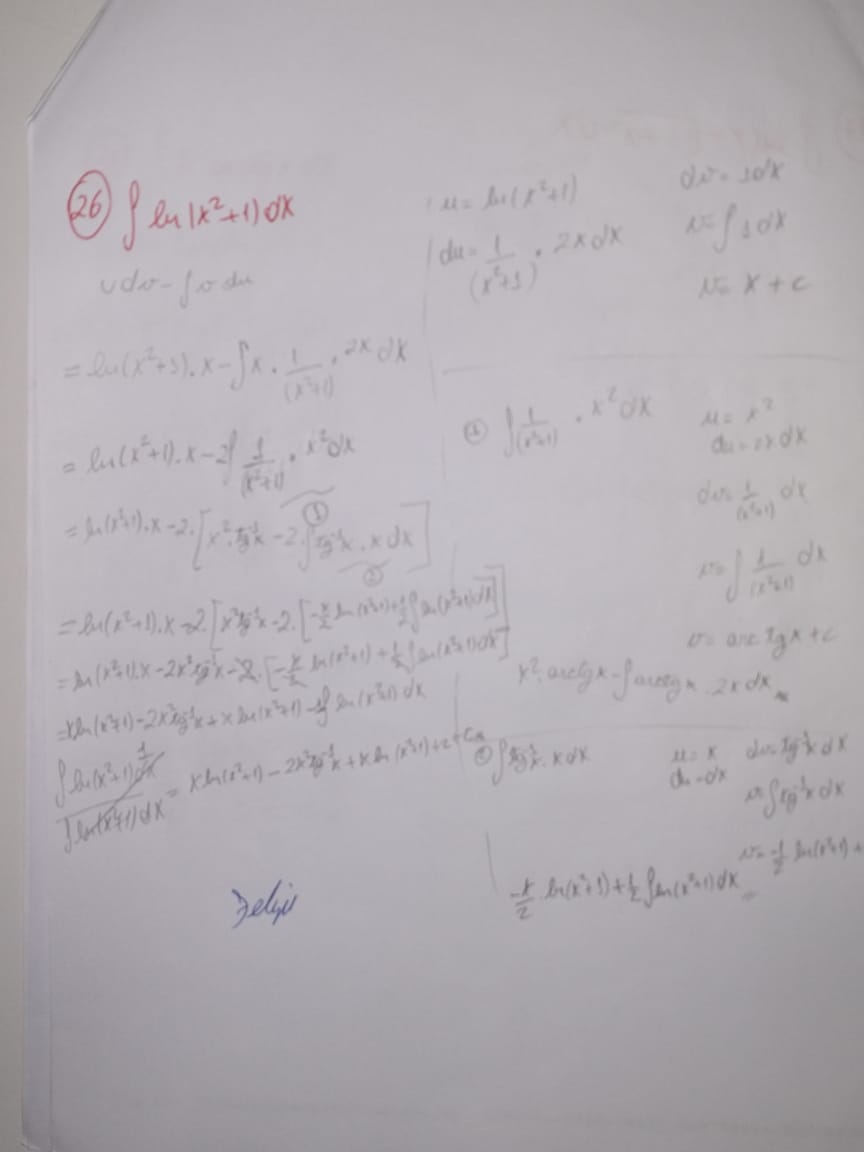 26 ∫ ln(x²+1) dx
u dv - ∫ v du
= ln(x²+1).x - ∫ x . 1/(x²+1) . 2x dx
= ln(x²+1).x - 2∫ 1/(x²+1) . x² dx
①
= ln(x²+1).x - 2.[x².tg⁻¹x - 2.∫tg⁻¹x . x dx]
②
= ln(x²+1).x - 2[x²tg⁻¹x - 2.[-x/2 ln(x²+1) + 1/2 ∫ln(x²+1)dx]]
= ln(x²+1).x - 2x²tg⁻¹x - 2.[-x/2 ln(x²+1) + 1/2 ∫ln(x²+1)dx]
= xln(x²+1) - 2x²tg⁻¹x + x ln(x²+1) - 1∫ ln(x²+1) dx
= xln(x²+1) - 2x²tg⁻¹x + x ln(x²+1)
∫ln(x²+1)dx
u = ln(x²+1)
du = 1/(x²+1) . 2x dx
dv = 1dx
v = ∫1dx
v = x + c
① ∫ 1/(x²+1) . x² dx
u = x²
du = 2x dx
dv = 1/(x²+1) dx
v = ∫ 1/(x²+1) dx
v = arc tg x + c
x².arctgx - ∫arctgx . 2x dx
∫tg⁻¹x . x dx
u = x
du = dx
dv = tg⁻¹x dx
v = ∫tg⁻¹x dx
v = -1/2 ln(x²+1) +
-x/2 . ln(x²+1) + 1/2 ∫ln(x²+1) dx